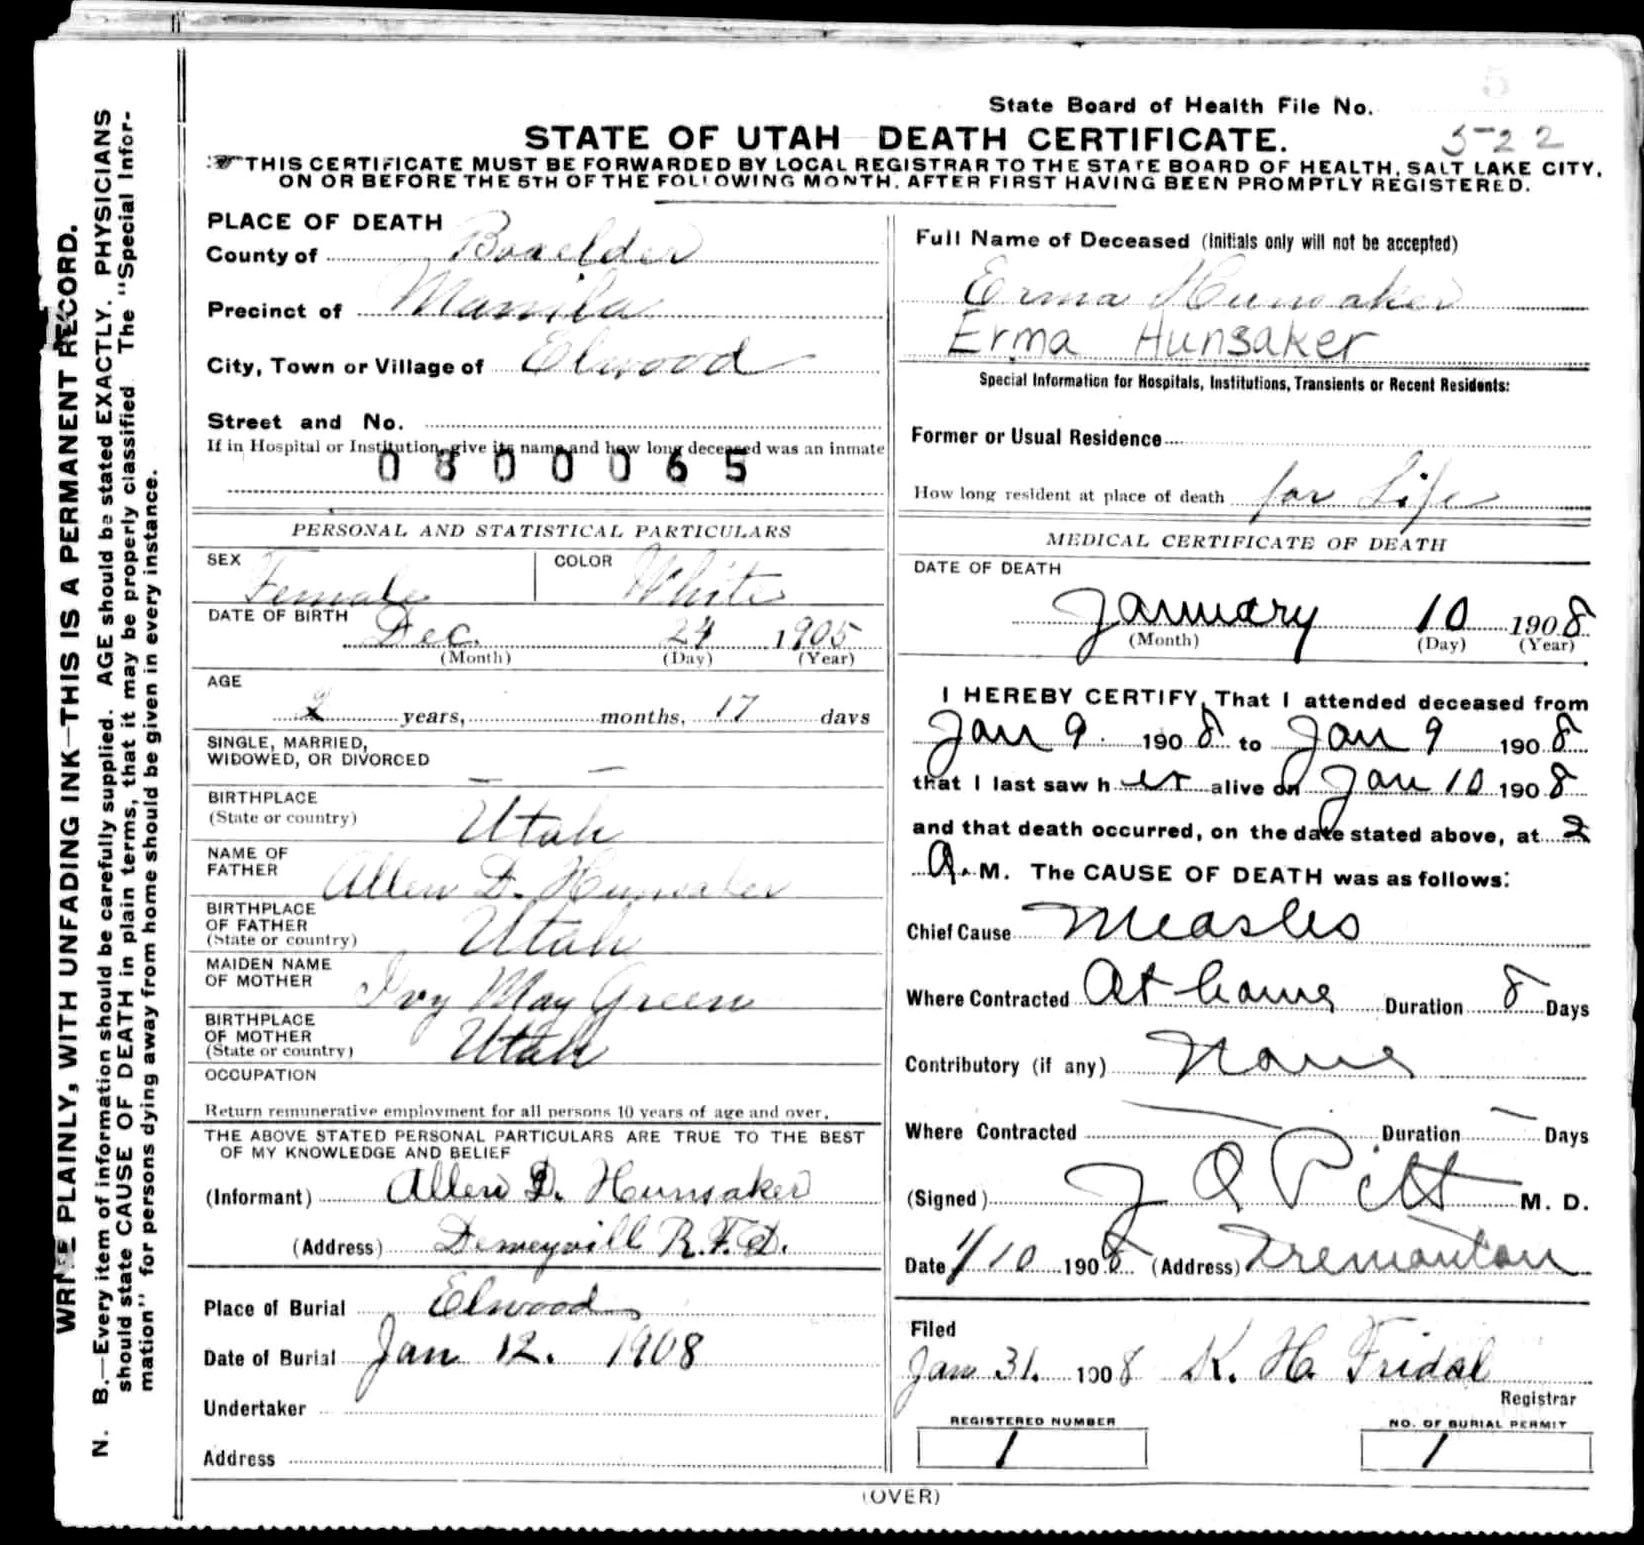 State Board of Health File No.
5
522
STATE OF UTAH—DEATH CERTIFICATE.
THIS CERTIFICATE MUST BE FORWARDED BY LOCAL REGISTRAR TO THE STATE BOARD OF HEALTH, SALT LAKE CITY,
ON OR BEFORE THE 5TH OF THE FOLLOWING MONTH, AFTER FIRST HAVING BEEN PROMPTLY REGISTERED.
WRITE PLAINLY, WITH UNFADING INK—THIS IS A PERMANENT RECORD.
N. B.—Every item of information should be carefully supplied. AGE should be stated EXACTLY. PHYSICIANS
should state CAUSE OF DEATH in plain terms, that it may be properly classified. The "Special Infor-
mation" for persons dying away from home should be given in every instance.
PLACE OF DEATH
County of Boxelder
Precinct of Manila
City, Town or Village of Elwood
Street and No.
If in Hospital or Institution, give its name and how long deceased was an inmate
0800065
PERSONAL AND STATISTICAL PARTICULARS
SEX Female COLOR White
DATE OF BIRTH
Dec. 24 1905
(Month) (Day) (Year)
AGE
2 years, months, 17 days
SINGLE, MARRIED,
WIDOWED, OR DIVORCED
— —
BIRTHPLACE
(State or country) Utah
NAME OF
FATHER Allen D. Hunsaker
BIRTHPLACE
OF FATHER
(State or country) Utah
MAIDEN NAME
OF MOTHER Ivy May Green
BIRTHPLACE
OF MOTHER
(State or country) Utah
OCCUPATION
Return remunerative employment for all persons 10 years of age and over.
THE ABOVE STATED PERSONAL PARTICULARS ARE TRUE TO THE BEST
OF MY KNOWLEDGE AND BELIEF
(Informant) Allen D. Hunsaker
(Address) Deweyvill R.F.D.
Place of Burial Elwood
Date of Burial Jan 12. 1908
Undertaker
Address
Full Name of Deceased (Initials only will not be accepted)
Erma Hunsaker
Erma Hunsaker
Special Information for Hospitals, Institutions, Transients or Recent Residents:
Former or Usual Residence
How long resident at place of death for Life
MEDICAL CERTIFICATE OF DEATH
DATE OF DEATH
January 10 1908
(Month) (Day) (Year)
I HEREBY CERTIFY, That I attended deceased from
Jan 9 1908 to Jan 9 1908
that I last saw her alive on Jan 10 1908
and that death occurred, on the date stated above, at 2
A.M. The CAUSE OF DEATH was as follows:
Chief Cause Measles
Where Contracted At home Duration 8 Days
Contributory (if any) None
Where Contracted — Duration — Days
(Signed) J Q Pitt M. D.
Date 1/10 1908 (Address) Tremonton
Filed
Jan 31. 1908 K. H. Fridal
Registrar
REGISTERED NUMBER
1
NO. OF BURIAL PERMIT
1
(OVER)